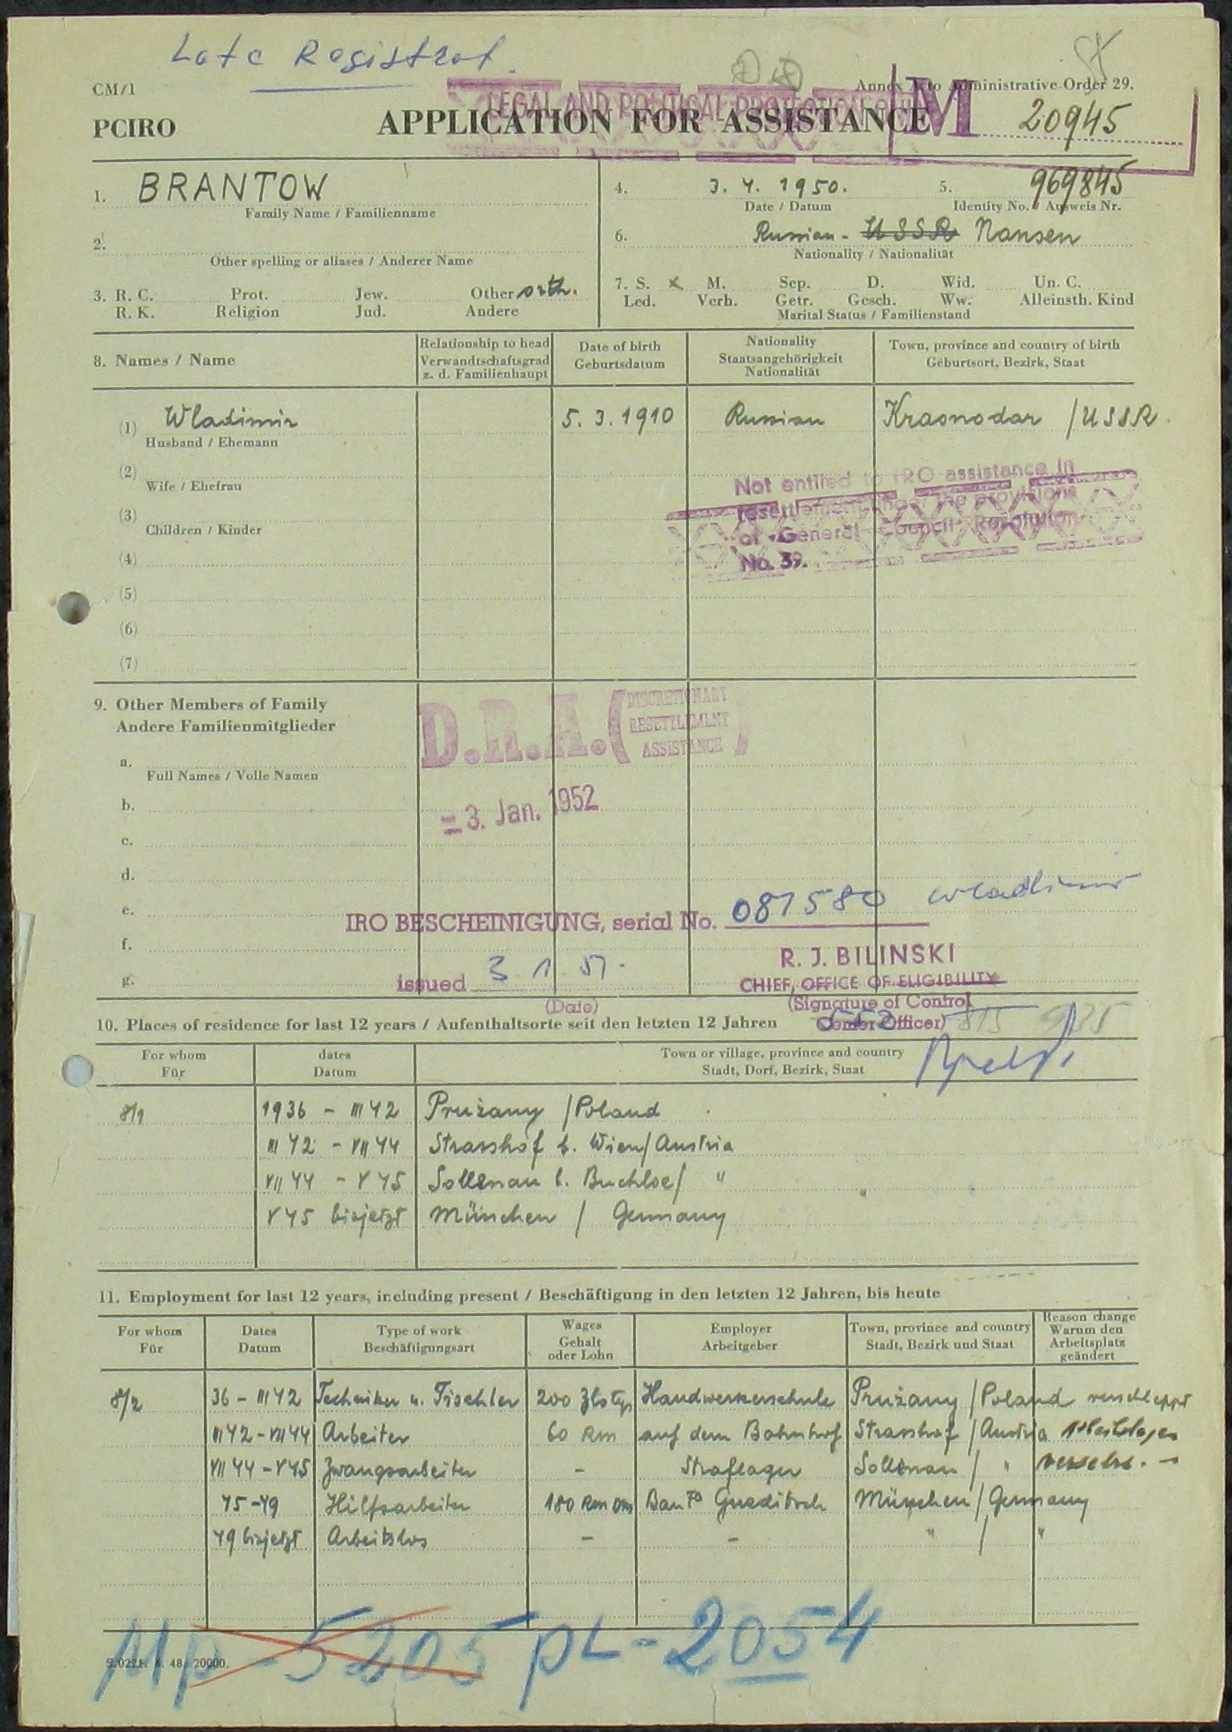 Late Registrat.
CM/1
Annex A to Administrative Order 29.
LEGAL AND POLITICAL PROTECTION ONLY
PCIRO
APPLICATION FOR ASSISTANCE
M 20945
1. BRANTOW
Family Name / Familienname
4. 3. 4. 1950.
Date / Datum
5. 969845
Identity No. / Ausweis Nr.
2.
Other spelling or aliases / Anderer Name
6. Russian - USSR Nansen
Nationality / Nationalität
3. R. C. Prot. Jew. Other orth.
R. K. Religion Jud. Andere
7. S. x M. Sep. D. Wid. Un. C.
Led. Verh. Getr. Gesch. Ww. Alleinsth. Kind
Marital Status / Familienstand
8. Names / Name
Relationship to head
Verwandtschaftsgrad
z. d. Familienhaupt
Date of birth
Geburtsdatum
Nationality
Staatsangehörigkeit
Nationalität
Town, province and country of birth
Geburtsort, Bezirk, Staat
(1) Wladimir 5. 3. 1910 Russian Krasnodar / USSR.
Husband / Ehemann
(2)
Wife / Ehefrau
(3)
Children / Kinder
(4)
(5)
(6)
(7)
Not entitled to IRO assistance in
resettlement under the provisions
of General Council Resolution
No. 39.
9. Other Members of Family
Andere Familienmitglieder
a.
Full Names / Volle Namen
b.
c.
d.
e.
f.
g.
D.R.A. (DISCRETIONARY
RESETTLEMENT
ASSISTANCE)
= 3. Jan. 1952
IRO BESCHEINIGUNG, serial No. 081580 Wladimir
R. J. BILINSKI
issued 3 1 51.
CHIEF, OFFICE OF ELIGIBILITY
(Date)
(Signature of Control
Center Officer)
10. Places of residence for last 12 years / Aufenthaltsorte seit den letzten 12 Jahren
For whom
Für
dates
Datum
Town or village, province and country
Stadt, Dorf, Bezirk, Staat
8/1 1936 - III 42 Prużany / Poland
III 42 - VII 44 Strasshof b. Wien / Austria
VII 44 - V 45 Sollenau b. Buchloe / "
V 45 bisjetzt München / Germany
11. Employment for last 12 years, including present / Beschäftigung in den letzten 12 Jahren, bis heute
For whom
Für
Dates
Datum
Type of work
Beschäftigungsart
Wages
Gehalt
oder Lohn
Employer
Arbeitgeber
Town, province and country
Stadt, Bezirk und Staat
Reason change
Warum den
Arbeitsplatz
geändert
8/2 36 - III 42 Techniker u. Tischler 200 Zlotys Handwerkerschule Prużany / Poland verschleppt
III 42 - VII 44 Arbeiter 60 RM auf dem Bahnhof Strasshof / Austria
VII 44 - V 45 Zwangsarbeiter - Straflager Sollenau / "
45 - 49 Hilfsarbeiter 180 RM DM München / Germany
49 bisjetzt Arbeitslos - - " / "
Mp - 5205 pL - 2054